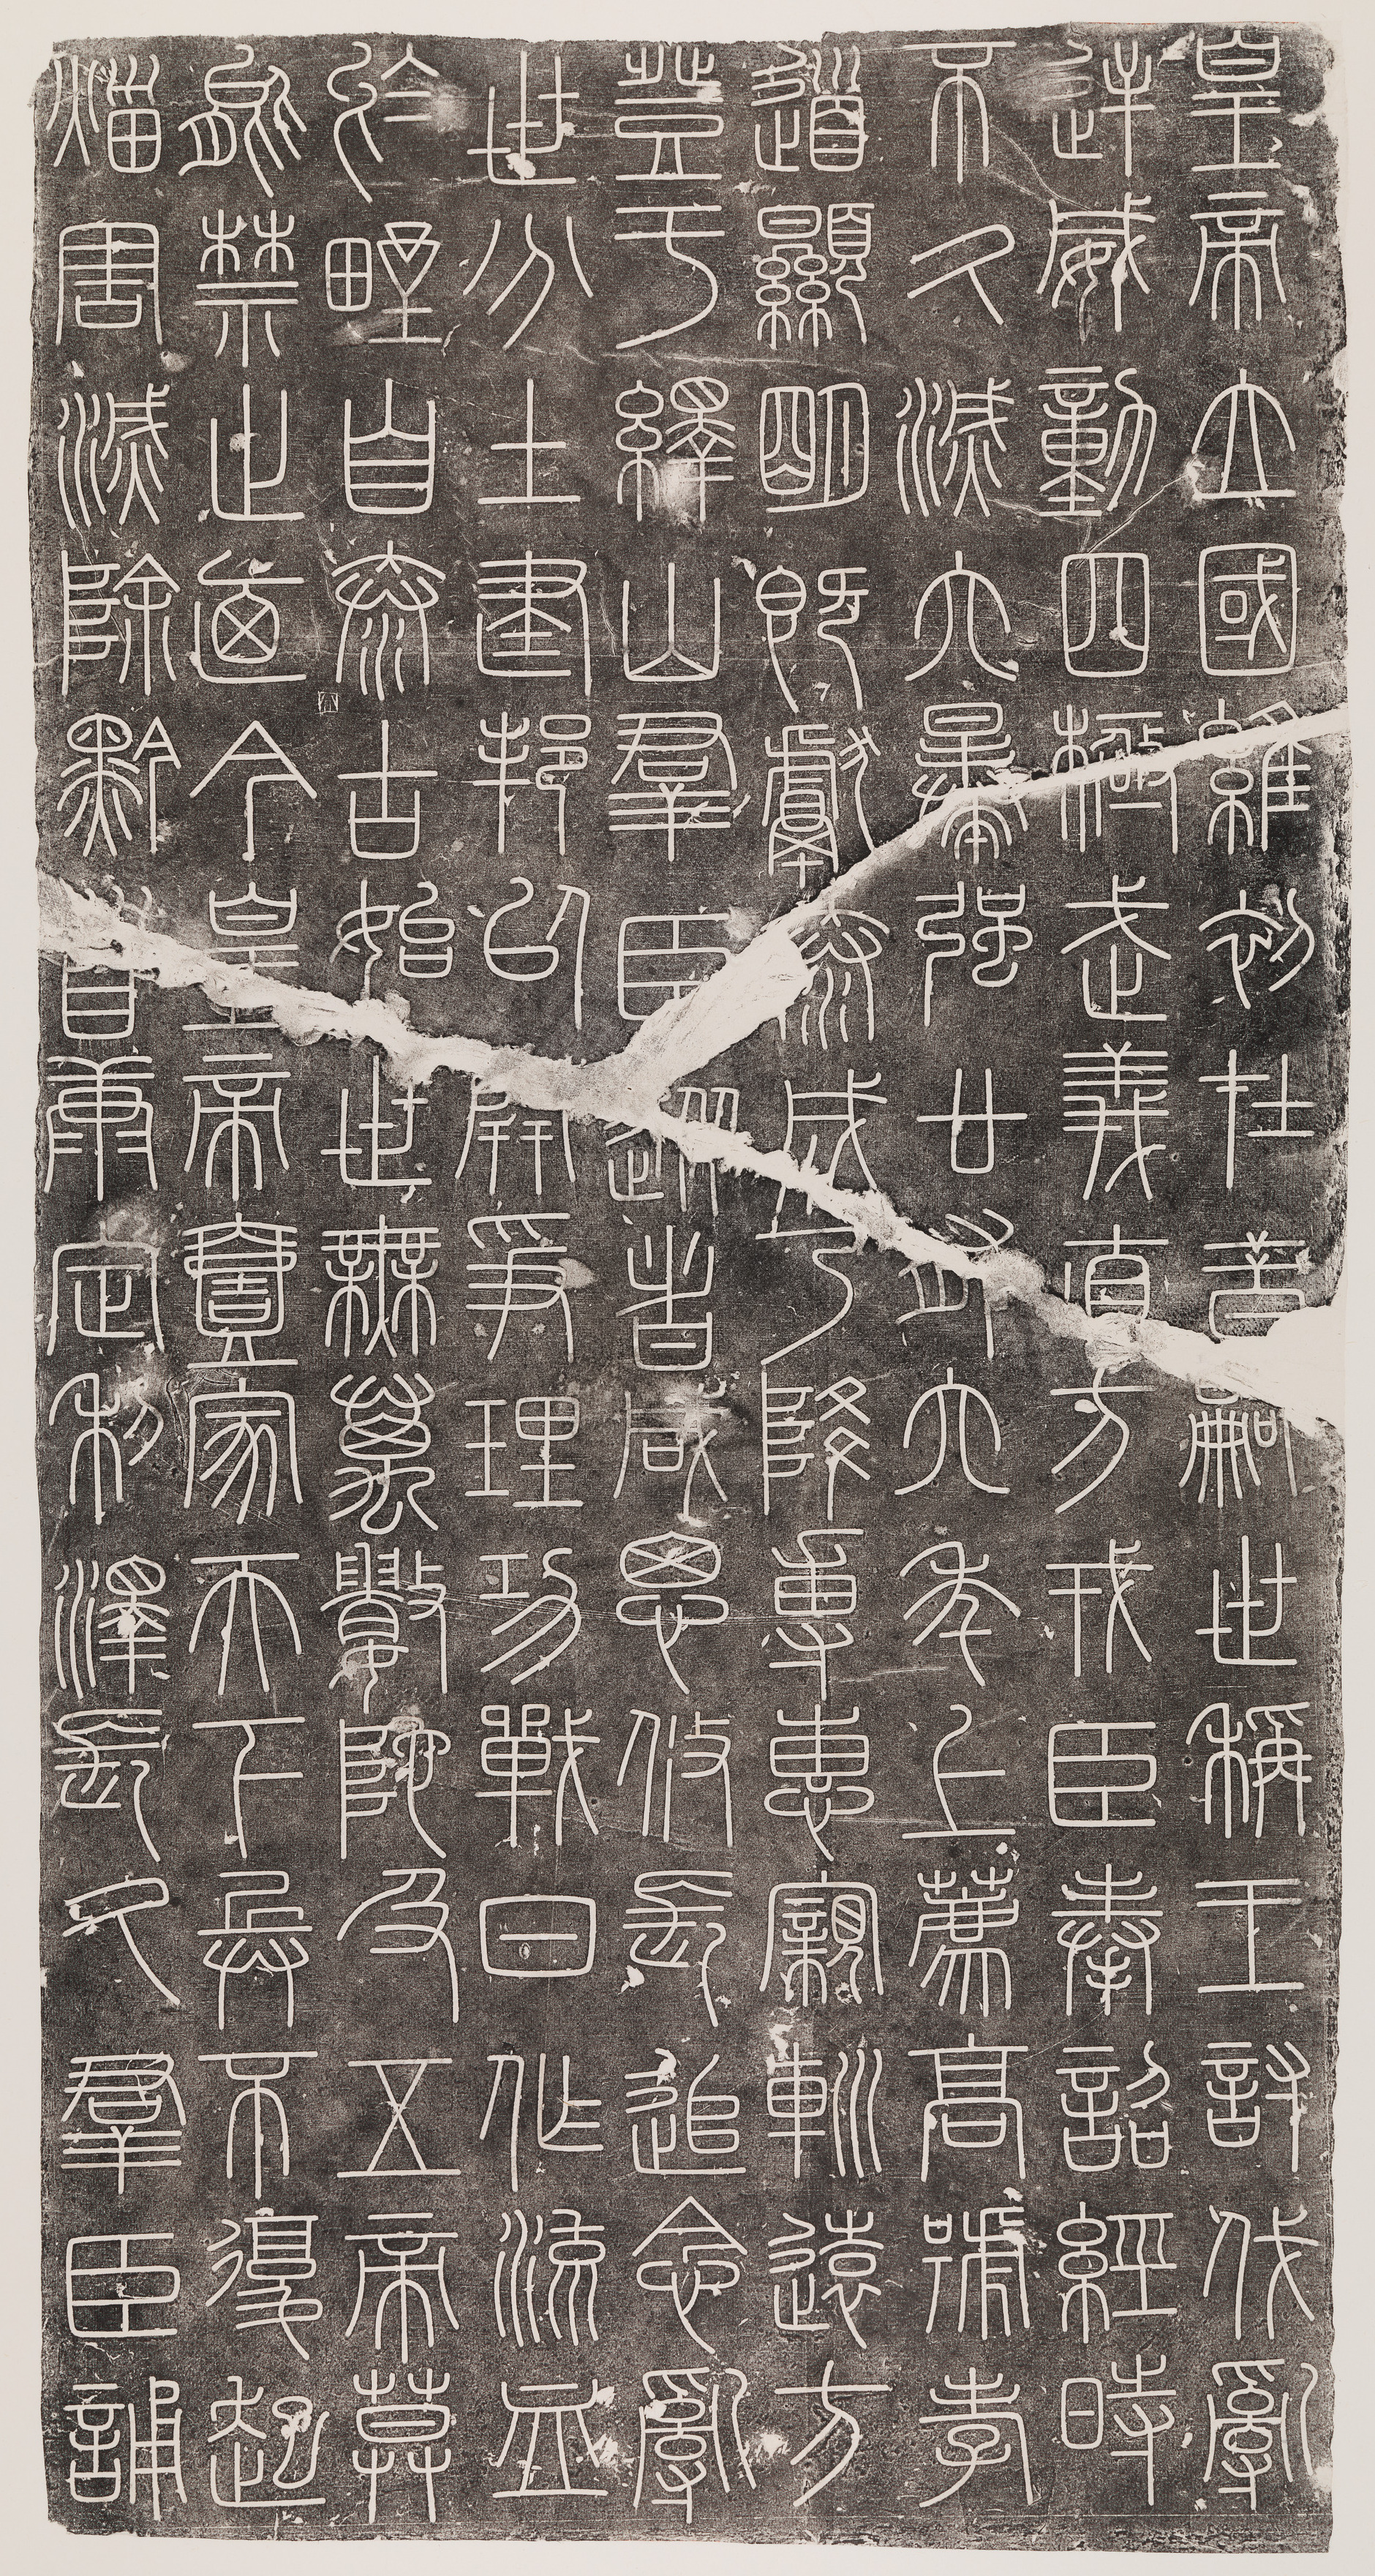 皇帝立國維初在昔嗣世稱王討伐亂
逆威動四極武義直方戎臣奉詔經時
不久滅六暴强廿有六年上薦高號孝
道顯明既獻泰成乃降專惠寴巡遠方
登于繹山羣臣從者咸思攸長追念亂
世分土建邦以開爭理功戰日作流血
於野自泰古始世無萬數陀及五帝莫
能禁止迺今皇帝壹家天下兵不復起
災害滅除黔首康定利澤長久羣臣誦